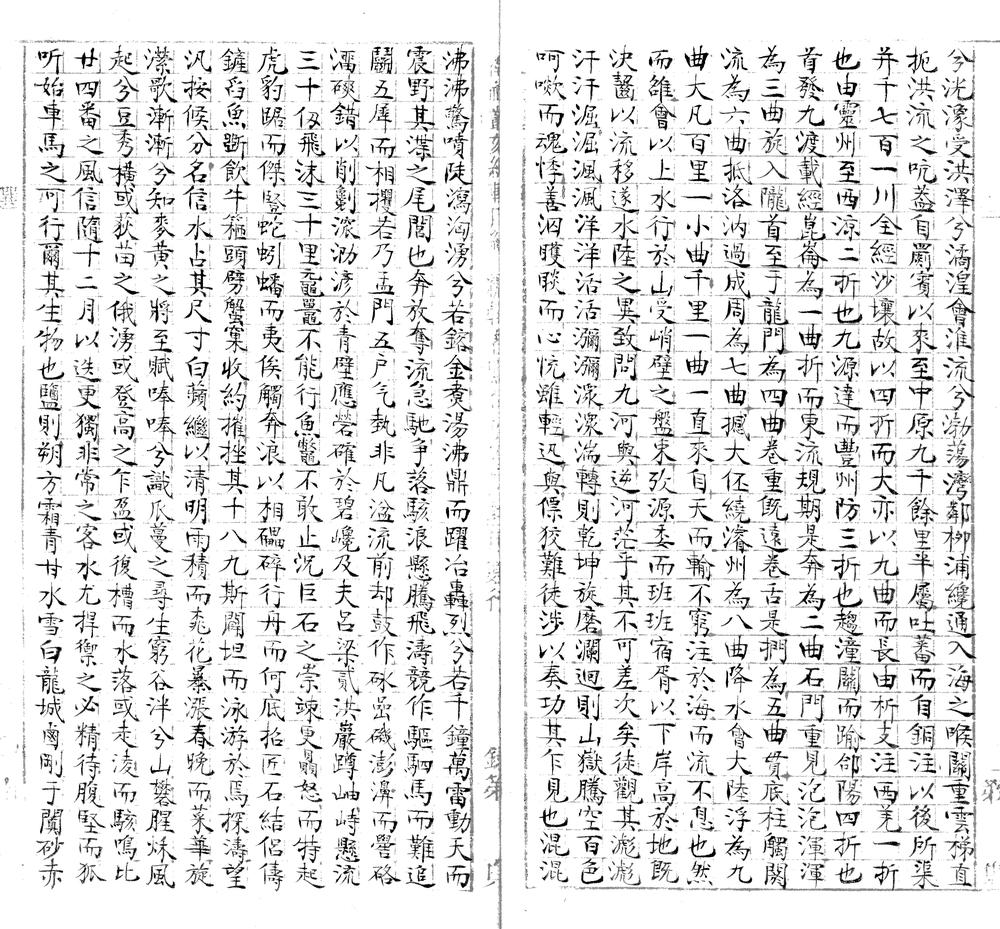 兮洸濠受洪澤兮潏湟會淮流兮渤蕩灣鄰柳浦纜通入海之喉關重雲梯直
扼洪流之吭葢自罽賓以來至中原九千餘里半屬吐蕃而自銅注以後所渠
并千七百一川全經沙壤故以四折而大亦以九曲而長由析支注西羌一折
也由靈州至西涼二折也九源達而豐州防三折也趨潼關而踰郃陽四折也
首發九渡載經崑崙為一曲折而東流規期是奔為二曲石門重見汜汜渾渾
為三曲旋入隴首至于龍門為四曲卷重旣遠卷舌是捫為五曲貫底柱觸閼
流為六曲抵洛汭過成周為七曲摵大伾繞濬州為八曲降水會大陸浮為九
曲大凡百里一小曲千里一曲一直來自天而輸不窮注於海而流不息也然
而雒會以上水行於山受峭壁之盤束弥源委而班班宿胥以下岸高於地旣
決嚙以流移遂水陸之異致問九河與逆河茫乎其不可差次矣徒觀其滮滮
汗汗淈淈渢渢洋洋活活瀰瀰滾滾湍轉則乾坤旋磨瀾迴則山嶽騰空百色
呵嗽而魂悸善泅矆睒而心怳雖輕迅與僄狡難徒涉以奏功其乍見也混混
沸沸驚噴陡瀉洶湧兮若鎔金煑湯沸鼎而躍冶轟烈兮若千鐘萬雷動天而
震野其澲之尾閭也奔放奪流急馳爭落駭浪懸騰飛濤競作驅駟馬而難追
鬬五犀而相攫若乃孟門五户气埶非凡湓流前却鼓作砅嵒磯澎濞而礐硌
澑磢錯以削劖滾泐㳽於青壁應礐確於碧巉及夫呂梁貳洪巖蹲岫峙懸流
三十仭飛沫三十里黿鼉不能行魚鼈不敢止沉巨石之崇竦更贔怒而特起
虎豹踞而傑豎蛇蚓蟠而夷俟觸奔浪以相礧碎行舟而何底招匠石結侶儔
鏟舀魚斷飲牛箍頭劈蟹窠收約摧挫其十八九斯闓坦而泳游於焉探濤望
汎按候分名信水占其尺寸白蘋繼以清明雨積而桃花暴漲春晚而菜華旋
瀠歌漸漸兮知麥黄之將至賦唪唪兮識瓜蔓之尋生窮谷泮兮山礬腥秌風
起兮豆秀橫或荻苗之俄湧或登高之乍盈或復槽而水落或走淩而駭鳴比
廿四番之風信隨十二月以迭更獨非常之客水尤捍禦之必精待腹堅而狐
听始車馬之可行爾其生物也鹽則朔方霜青甘水雪白龍城鹵剛于闐砂赤